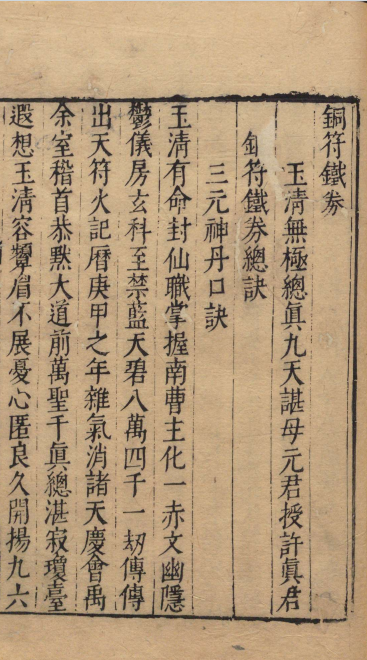 銅符鐵券
玉清無極總眞九天諶母元君授許眞君
銅符鐵券總訣
三元神丹口訣
玉淸有命封仙職掌握南曹主化一赤文幽隱
鬱儀房玄科至禁藍天碧八萬四千一刼傳傳
出天符火記曆庚甲之年雜氣消諸天慶會禹
余室稽首恭默大道前萬聖千眞總湛寂瓊臺
遐想玉淸容顰眉不展憂心匿良久開揚九六